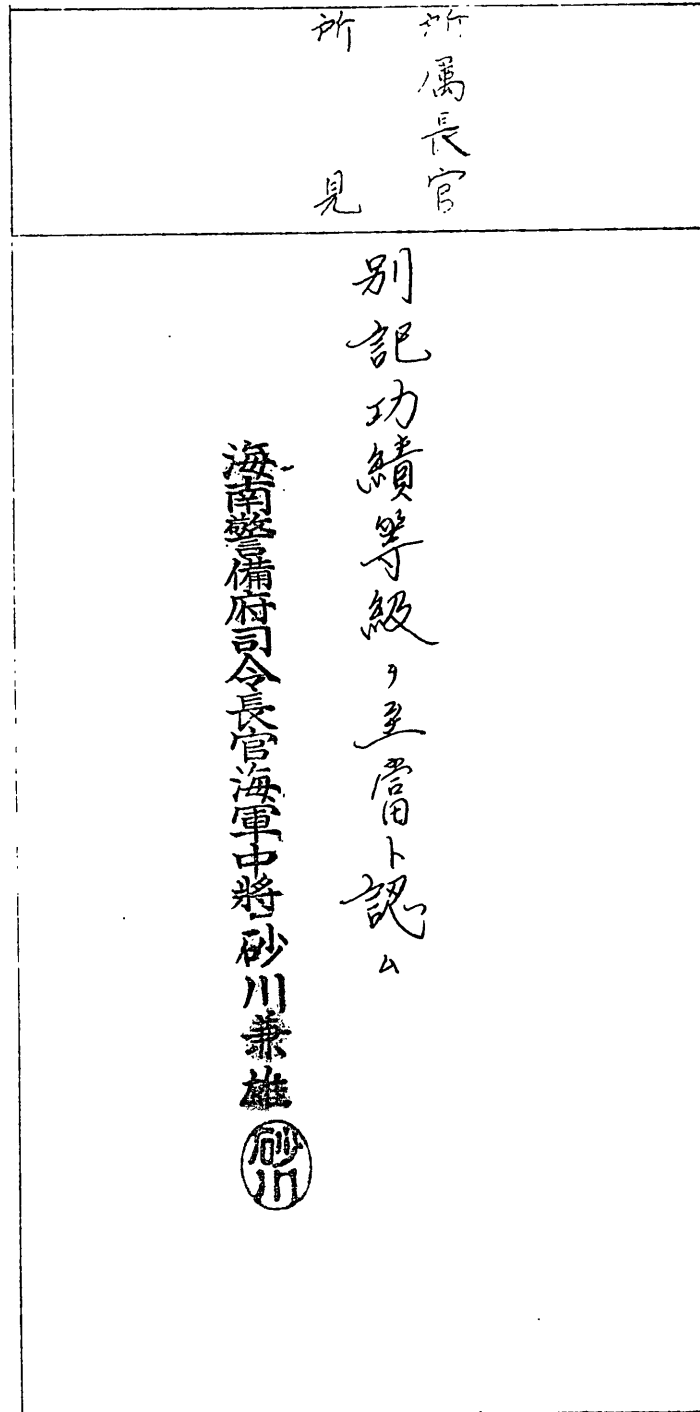 所属長官
所見
別記功績等級ヲ至當ト認ム
海南警備府司令長官海軍中將砂川兼雄
砂川